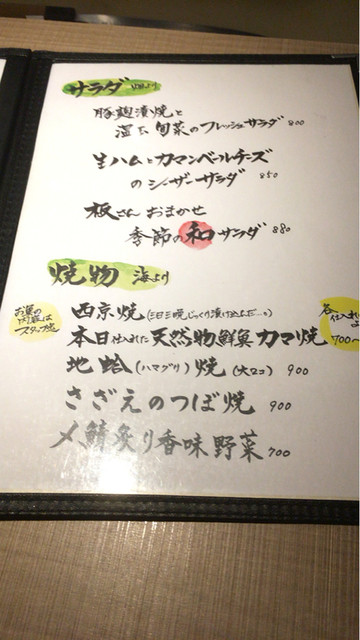 サラダ 畑より
豚麹漬焼と
温玉 旬菜のフレッシュサラダ 800
生ハムとカマンベールチーズ
のシーザーサラダ 850
板さんおまかせ
季節の和サラダ 880
焼物 海より
お魚の
内容は
スタッフ迄
西京焼(三日三晩じっくり漬け込んだ…。)
本日仕入れた天然物鮮魚カマ焼
各
仕入れ
700〜
地蛤(ハマグリ)焼(大2コ) 900
さざえのつぼ焼 900
〆鯖炙り香味野菜 700